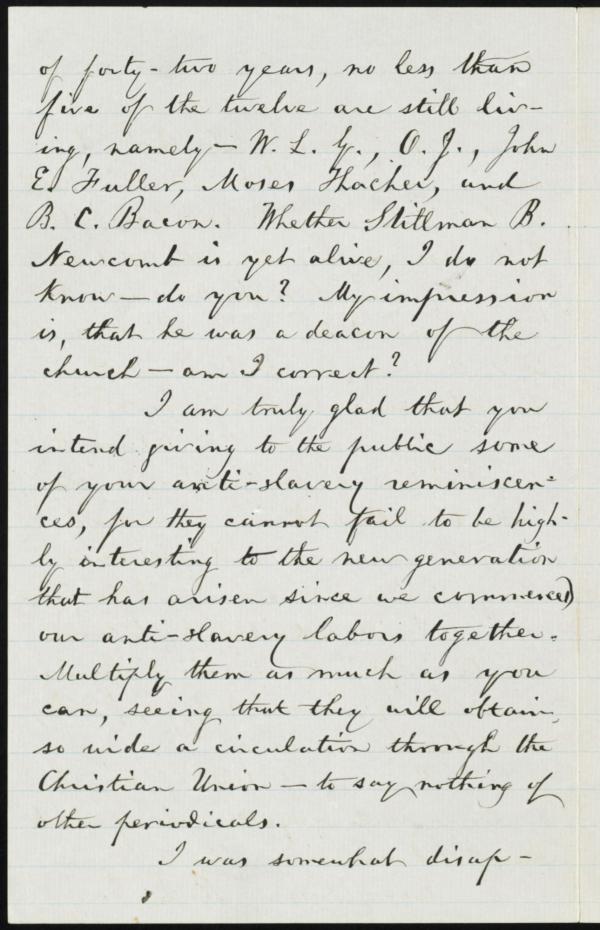 of forty-two years, no less than
five of the twelve are still liv-
ing, namely— W. L. G., O. J., John
E. Fuller, Moses Thacher, and
B. C. Bacon. Whether Stillman B.
Newcomb is yet alive, I do not
know — do you? My impression
is, that he was a deacon of the
church — am I correct?
I am truly glad that you
intend giving to the public some
of your anti-slavery reminiscen=
ces, for they cannot fail to be high-
ly interesting to the new generation
that has arisen since we commenced
our anti-slavery labors together.
Multiply them as much as you
can, seeing that they will obtain
so wide a circulation through the
Christian Union — to say nothing of
other periodicals.
I was somewhat disap-